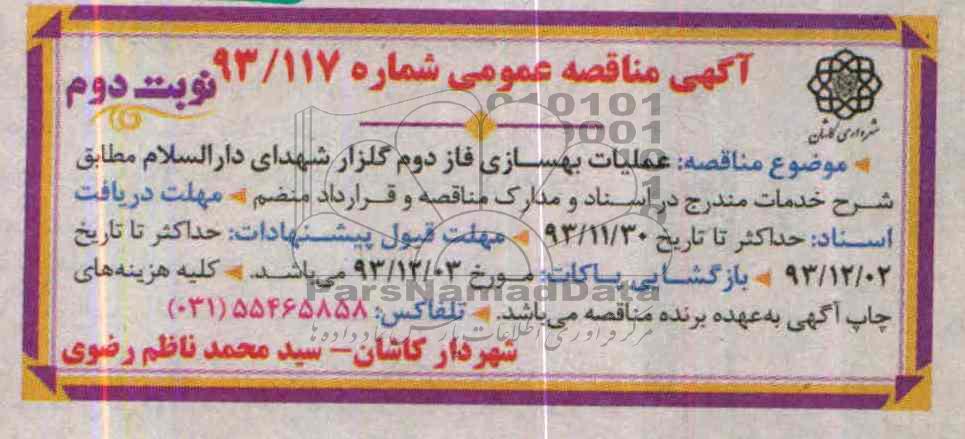 آگهی مناقصه عمومی شماره ۹۳/۱۱۷
نوبت دوم
شهرداری کاشان
موضوع مناقصه: عملیات بهسازی فاز دوم گلزار شهدای دارالسلام مطابق
شرح خدمات مندرج در اسناد و مدارک مناقصه و قرارداد منضم مهلت دریافت
اسناد: حداکثر تا تاریخ ۹۳/۱۱/۳۰ مهلت قبول پیشنهادات: حداکثر تا تاریخ
۹۳/۱۲/۰۲ بازگشایی پاکات: مورخ ۹۳/۱۲/۰۳ می‌باشد. کلیه هزینه‌های
چاپ آگهی به‌عهده برنده مناقصه می‌باشد. تلفاکس: ۵۵۴۶۵۸۵۸ (۰۳۱)
شهردار کاشان– سید محمد ناظم رضوی
ParsNamadData